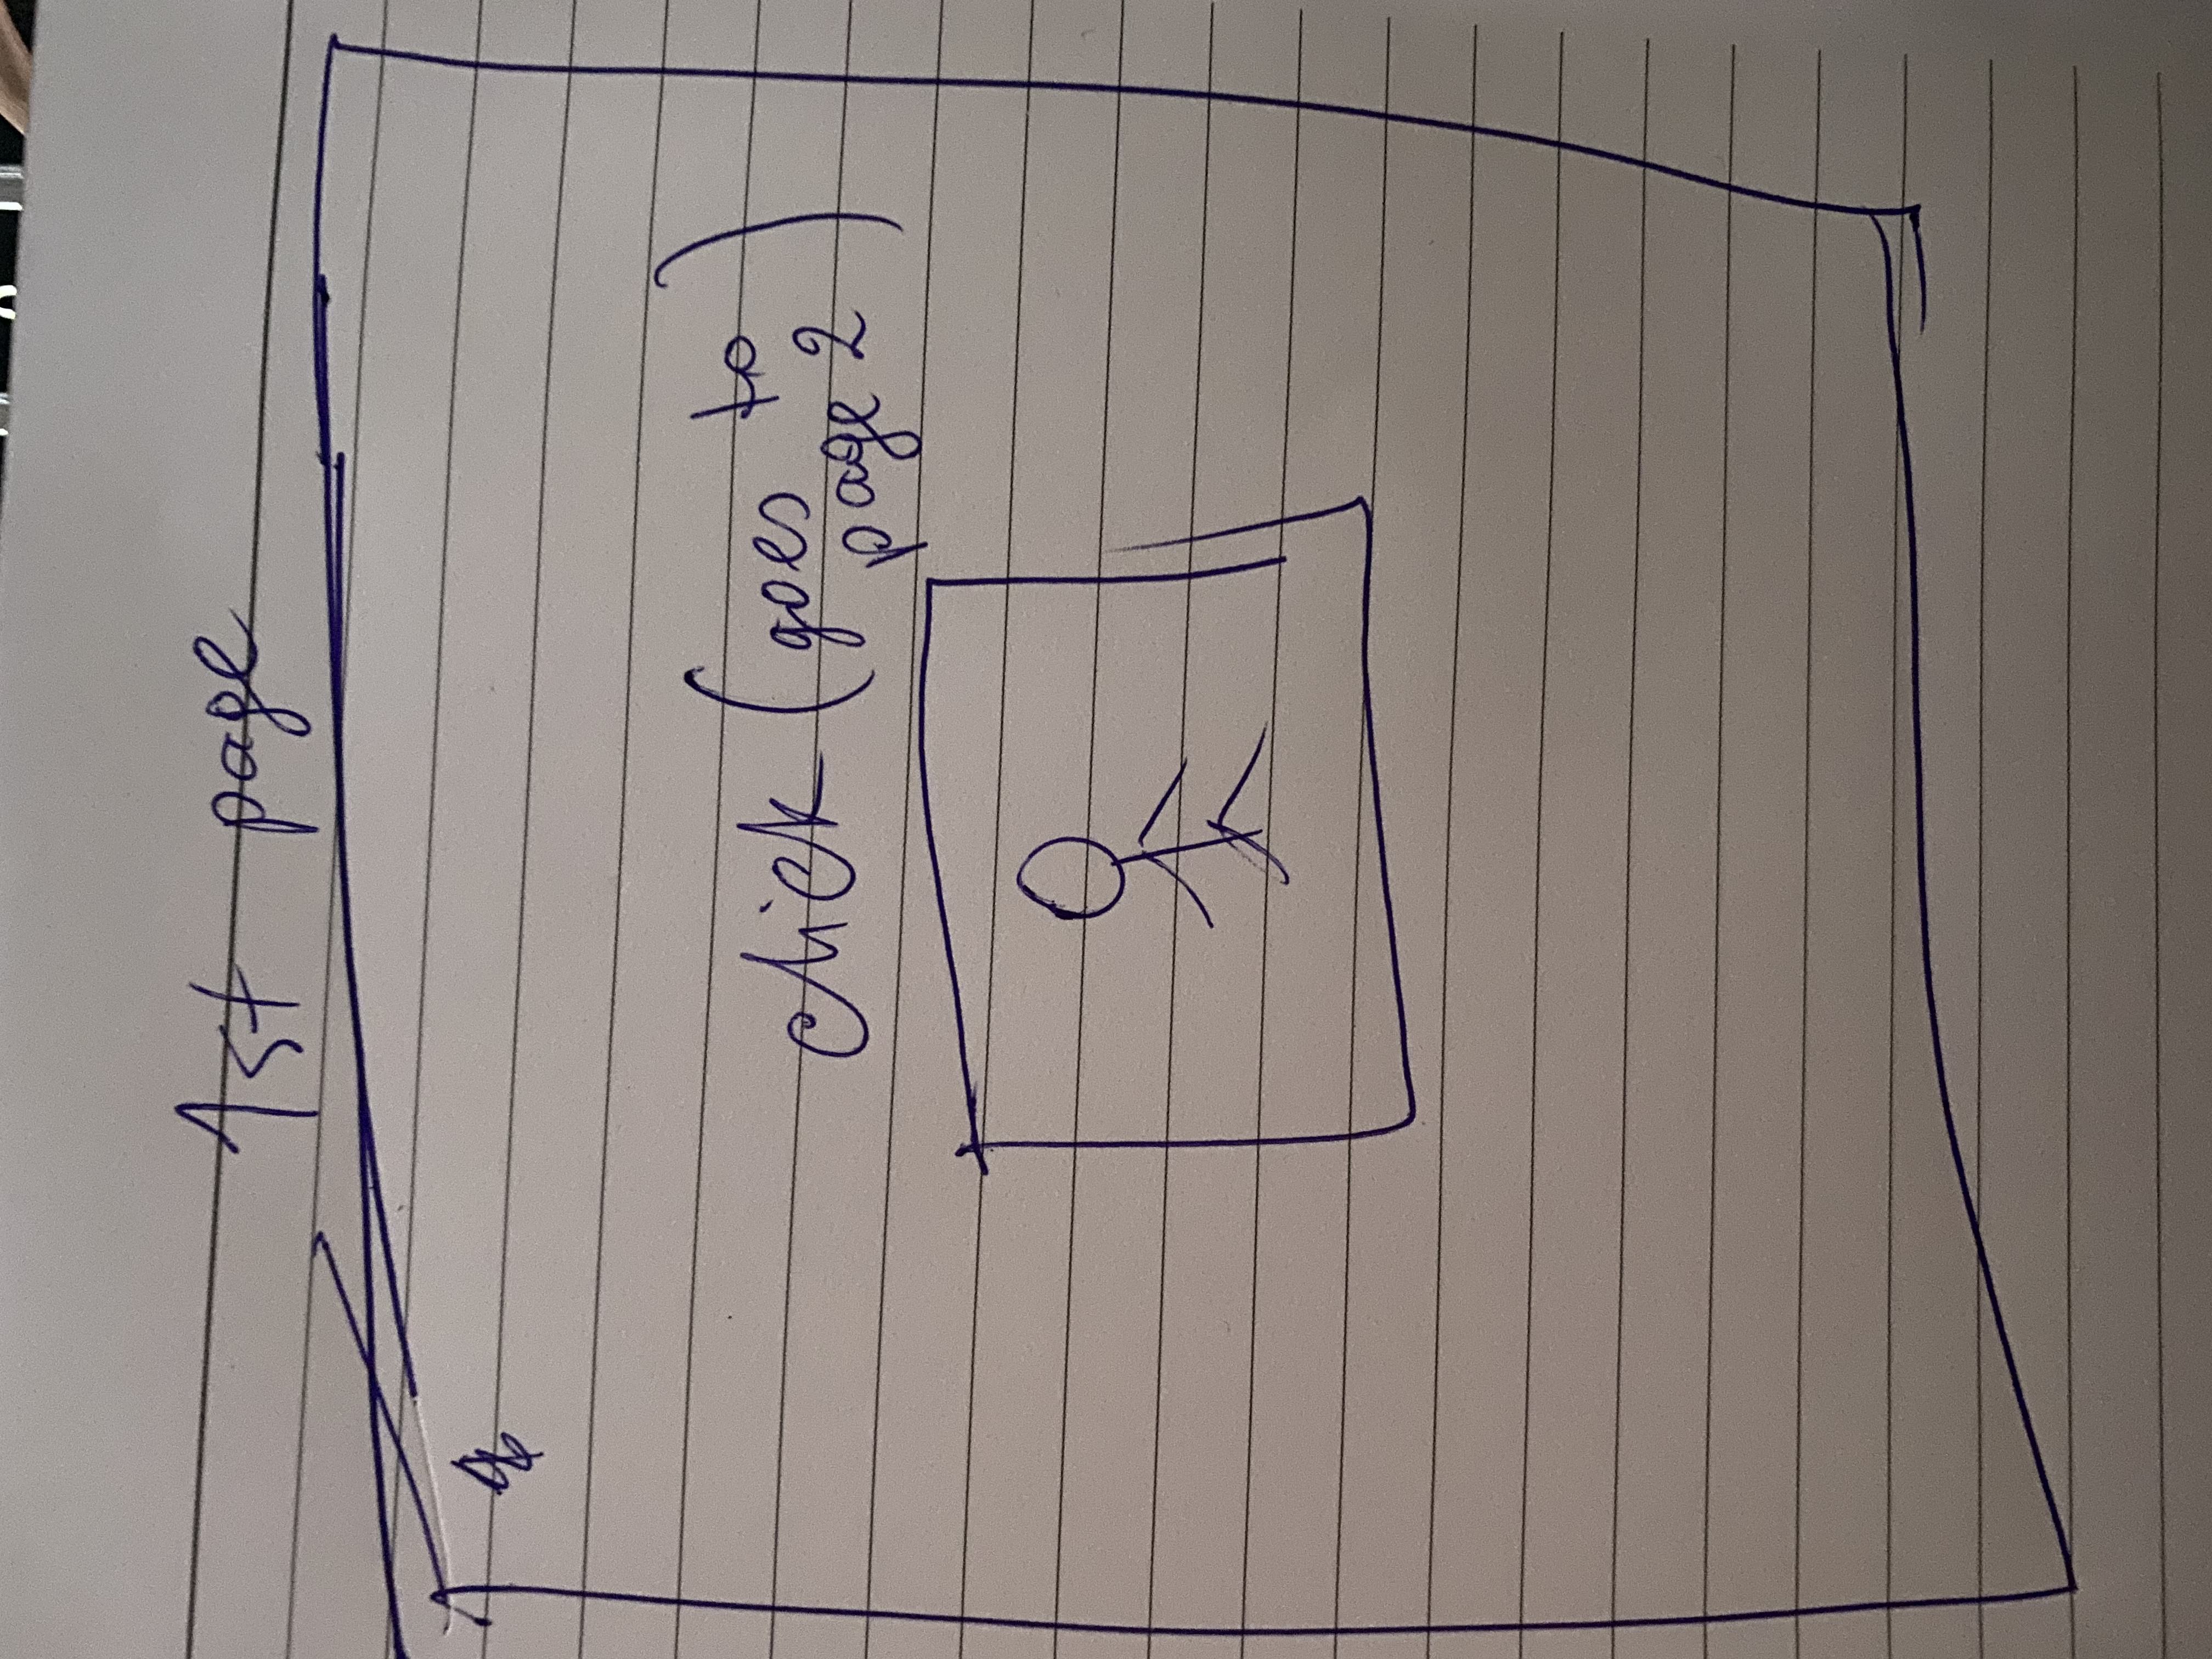 1st page
click (goes to
page 2)